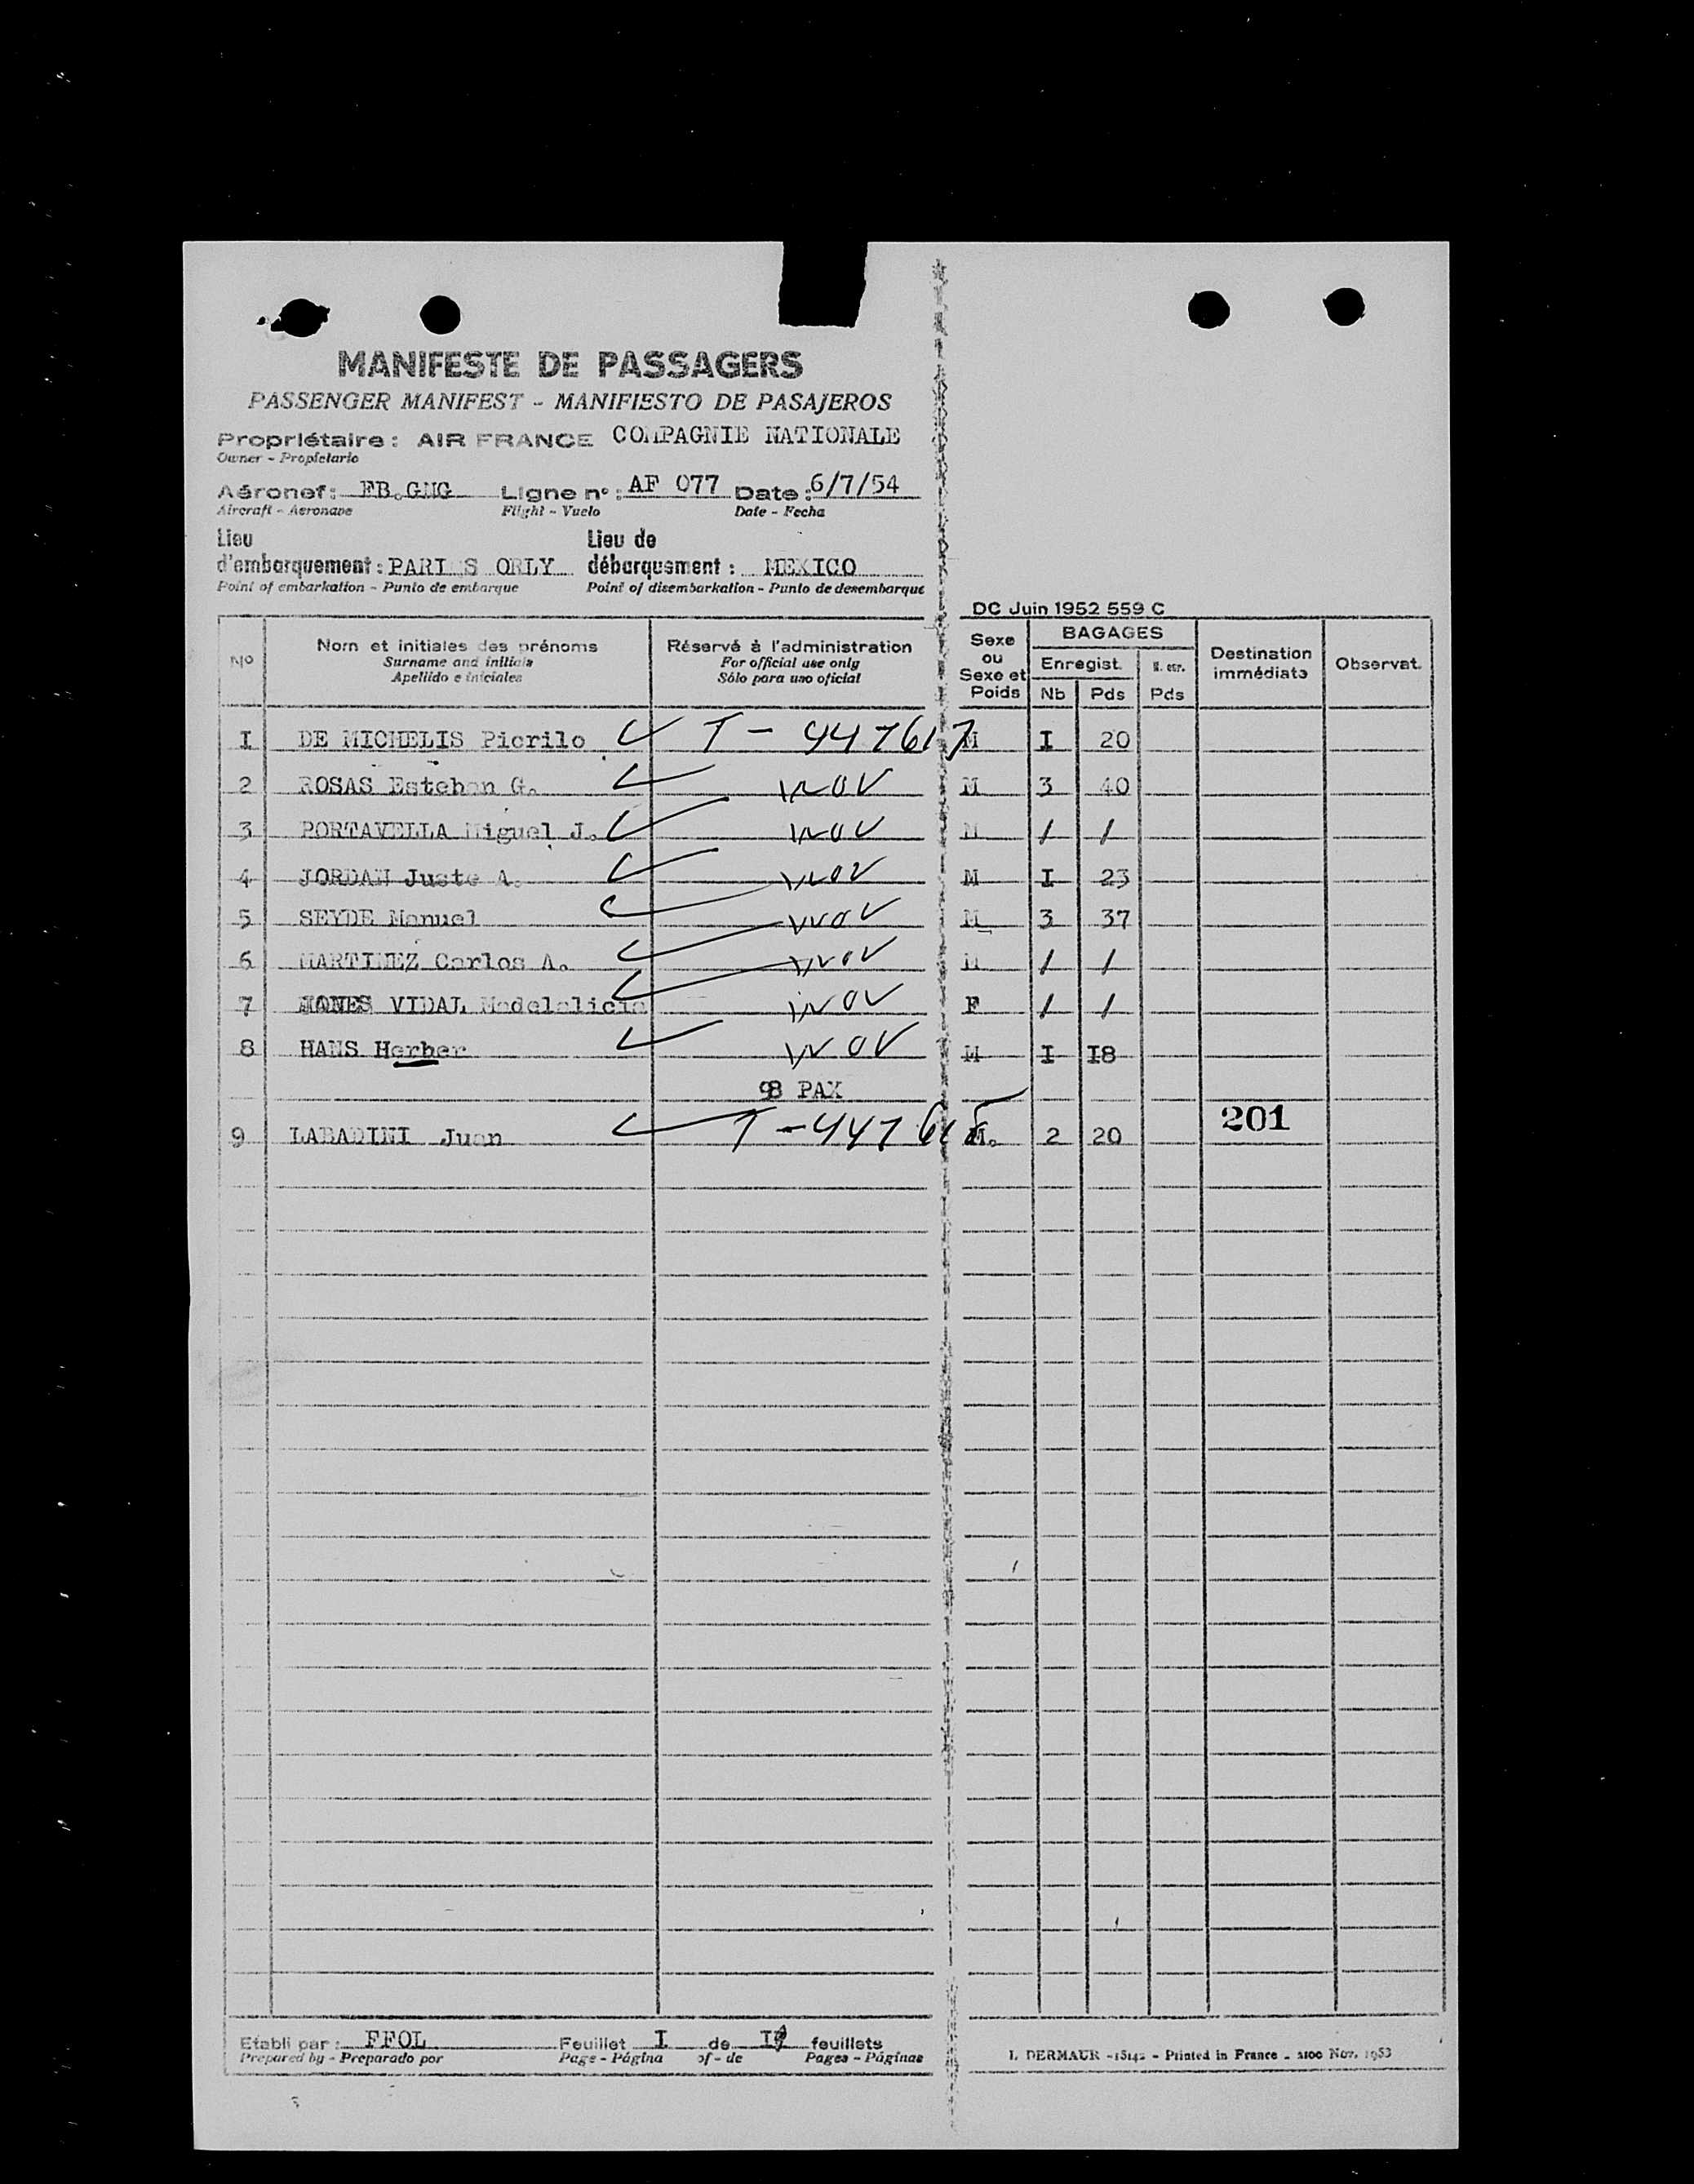 MANIFESTE DE PASSAGERS
PASSENGER MANIFEST - MANIFIESTO DE PASAJEROS
Propriétaire : AIR FRANCE COMPAGNIE NATIONALE
Owner - Propietario
Aéronef : FB.GNG Ligne n° : AF 077 Date : 6/7/54
Aircraft - Aeronave Flight - Vuelo Date - Fecha
Lieu Lieu de
d'embarquement : PARI S ORLY débarquement : MEXICO
Point of embarkation - Punto de embarque Point of disembarkation - Punto de desembarque
DC Juin 1952 559 C
N° Nom et initiales des prénoms Réservé à l'administration Sexe ou Sexe et Poids BAGAGES Destination immédiate Observat.
Surname and initials For official use only Enregist.
Apellido e iniciales Sólo para uso oficial Nb Pds Pds
I DE MICHELIS Picrilo T - 447617 M I 20
2 ROSAS Esteban G. M 3 40
3 PORTAVELLA Miguel J. M / /
4 JORDAN Juste A. M I 23
5 SEYDE Manuel M 3 37
6 MARTINEZ Carlos A. M / /
7 VIDAL F / /
8 HANS Herber M I I8
PAX
9 LABADINI Juan T - 44761 M. 2 20 201
Etabli par : FFOL Feuillet I de feuillets
Prepared by - Preparado por Page - Página of - de Pages - Páginas
Printed in France